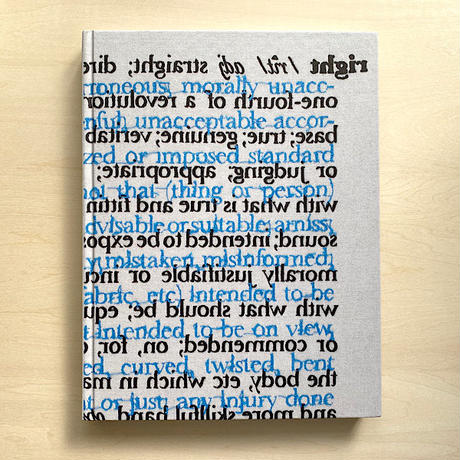 right /rīt/ adj straight; dire
rroneous, morally unacc-
one-fourth of a revolution
nful, unacceptable accor-
base; true; genuine; veritab
zed or imposed standard
or judging; appropriate;
not that (thing or person)
with what is true and fittin
dvisable or suitable; amiss;
sound; intended to be expos
y mistaken, misinformed;
morally justifiable or incu
abric, etc) intended to be
with what should be; equ
t intended to be on view
or commended; on, for, o
ed, curved, twisted, bent
the body, etc which in ma
t or just any injury done
and more skillful hand